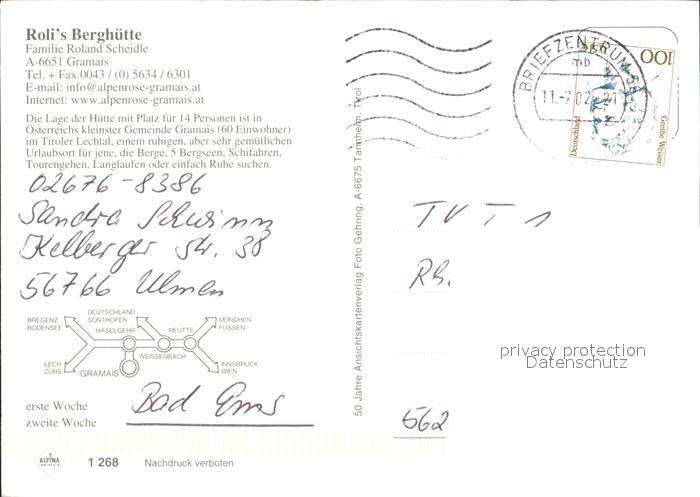 Roli's Berghütte
Familie Roland Scheidle
A-6651 Gramais
Tel. + Fax 0043 / (0) 5634 / 6301
E-mail: info@alpenrose-gramais.at
Internet: www.alpenrose-gramais.at
Die Lage der Hütte mit Platz für 14 Personen ist in
Österreichs kleinster Gemeinde Gramais (60 Einwohner)
im Tiroler Lechtal, einem ruhigen, aber sehr gemütlichen
Urlaubsort für jene, die Berge, 5 Bergseen, Schifahren,
Tourengehen, Langlaufen oder einfach Ruhe suchen.
02676-8386
Sandra Schwinn
Kelberger Str. 38
56766 Ulmen
BREGENZ
BODENSEE
DEUTSCHLAND
SONTHOFEN
HÄSELGEHR
REUTTE
MÜNCHEN
FÜSSEN
WEISSENBACH
LECH
ZÜRS
GRAMAIS
INNSBRUCK
WIEN
erste Woche
zweite Woche
Bad Ems
ALPINA
1 268 Nachdruck verboten
50 Jahre Ansichtskartenverlag Foto Gehring, A-6675 Tannheim, Tirol
BRIEFZENTRUM 56
mb
11.-7.02.-21
100
Deutschland
Grethe Weiser
TV T 1
Rh.
562
privacy protection
Datenschutz